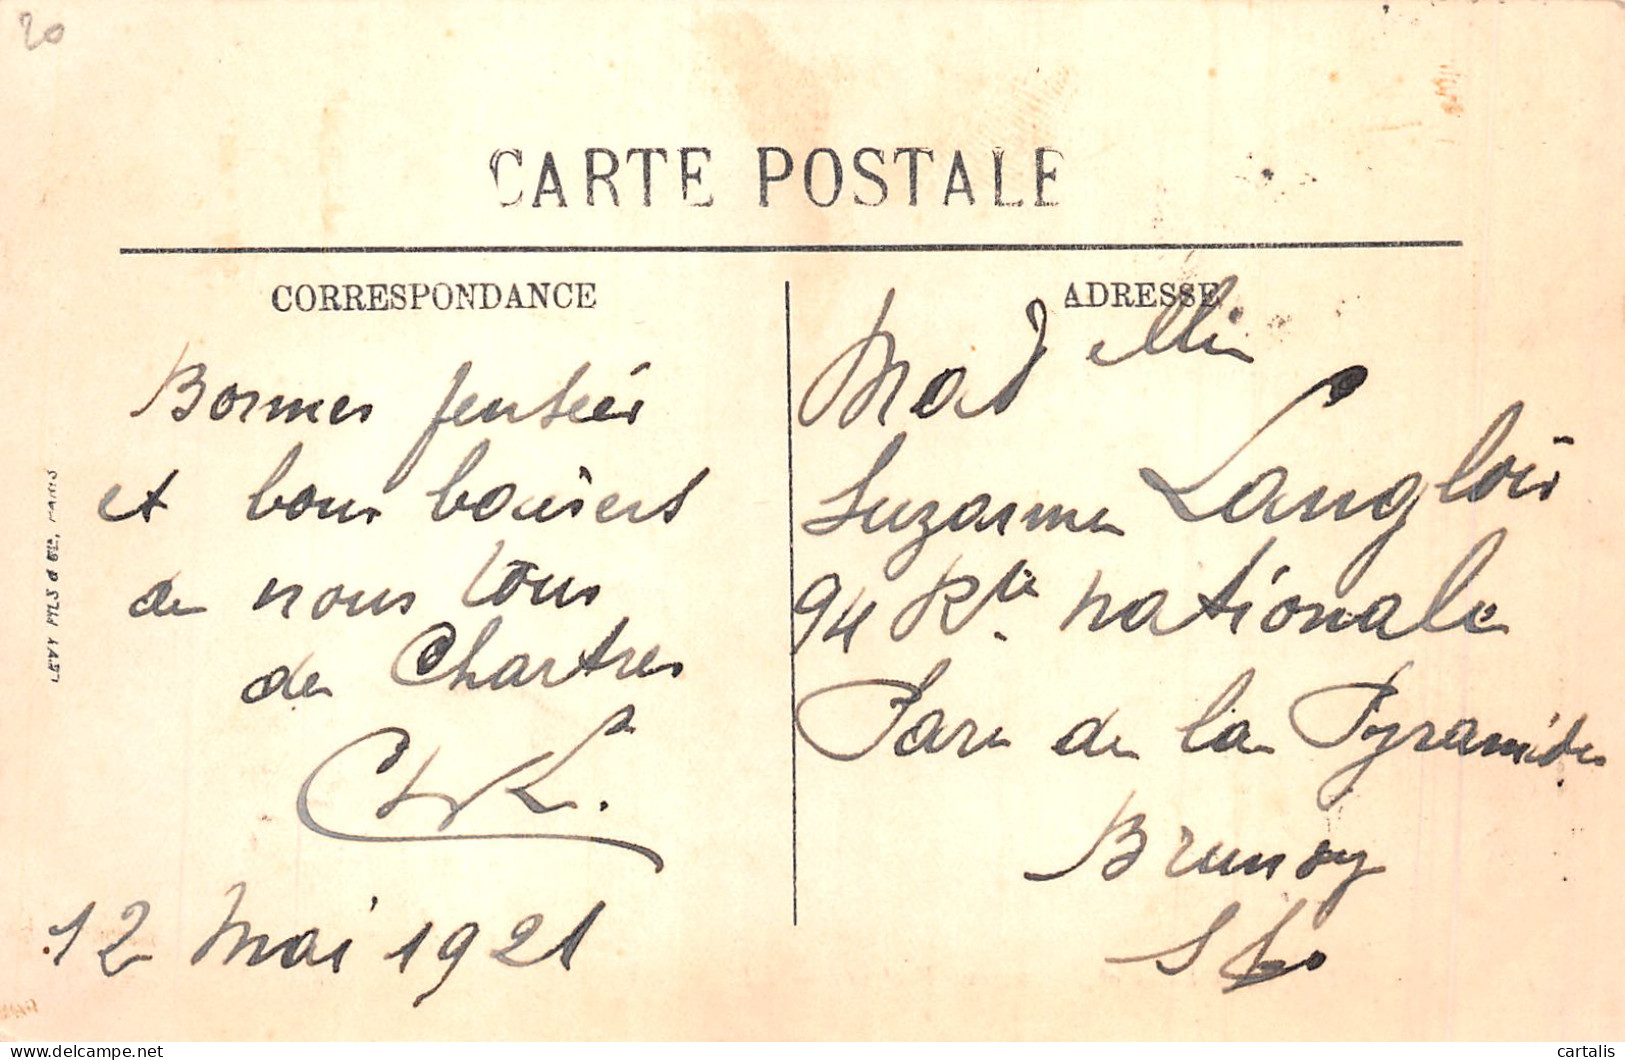 20
CARTE POSTALE
CORRESPONDANCE
Bonnes pensées
et bons baisers
de nous tous
de Chartres
12 Mai 1921
ADRESSE
Mademoiselle
Suzanne Langlois
94 Rte nationale
Parc de la Pyramide
Brunoy
S & O
LEVY FILS & CIE, PARIS
www.delcampe.net
cartalis